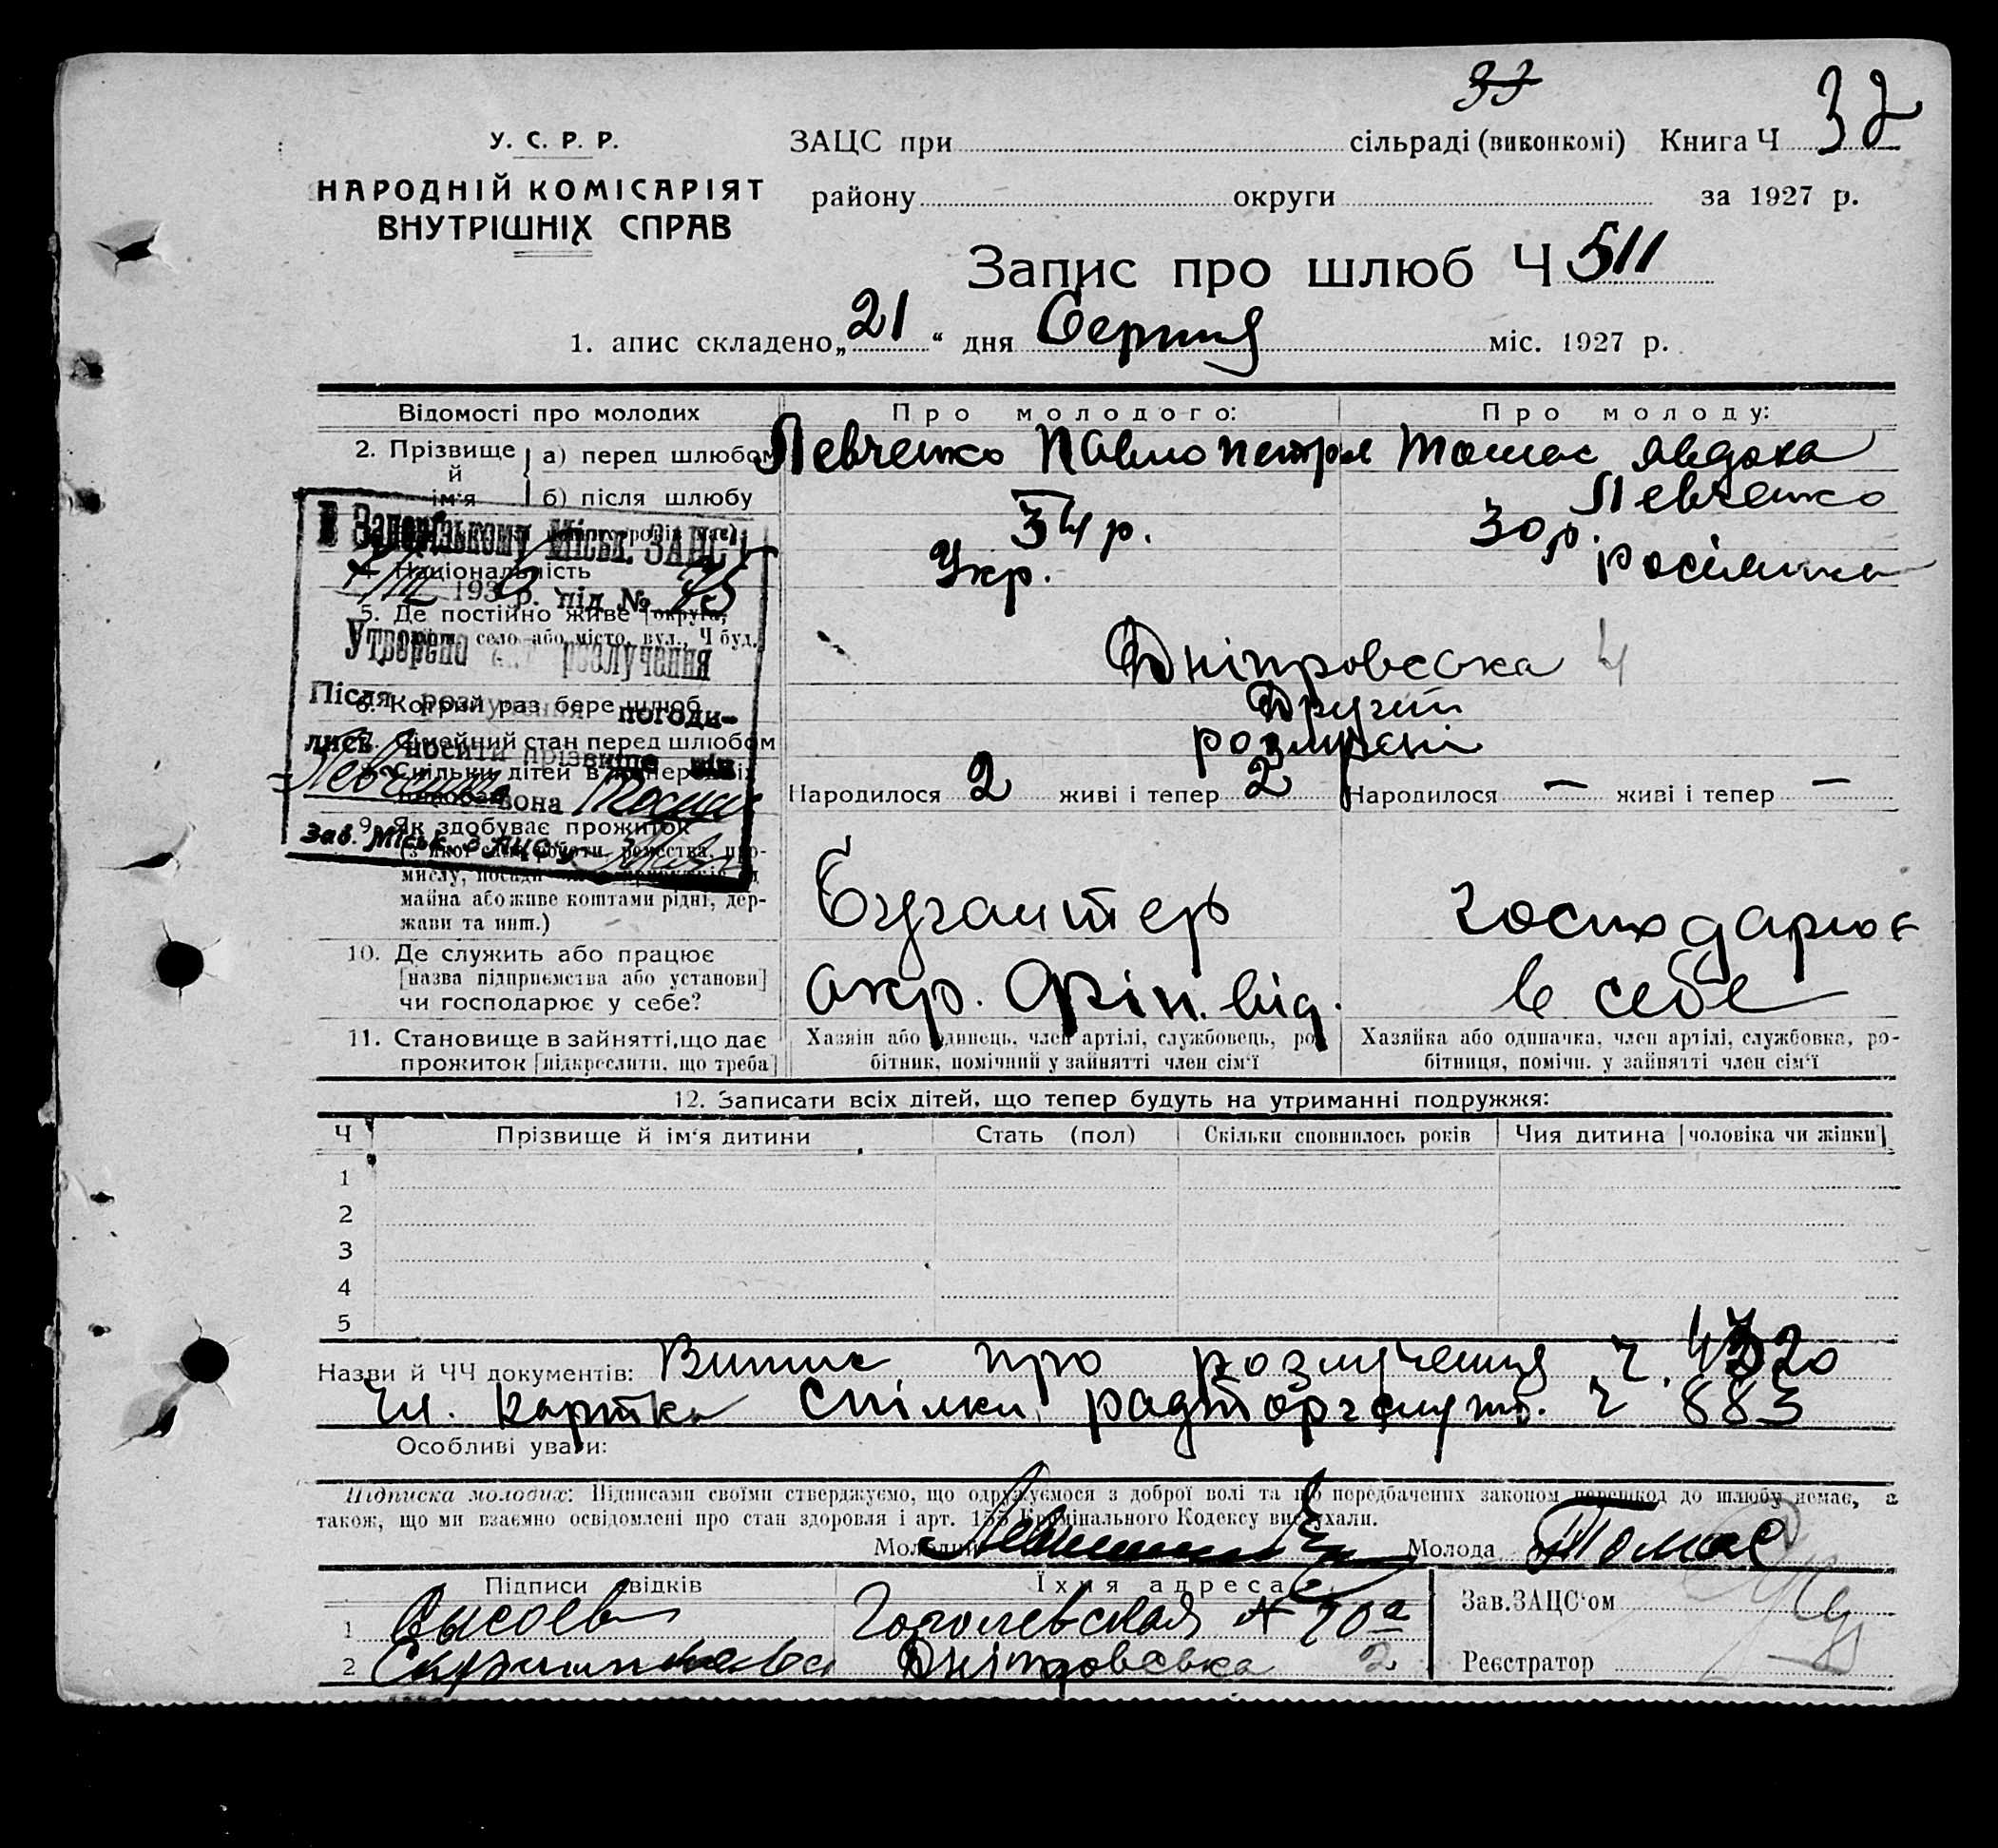 33
У. С. Р. Р.
ЗАЦС при сільраді (виконкомі) Книга Ч 32
НАРОДНІЙ КОМІСАРІЯТ
району округи за 1927 р.
ВНУТРІШНІХ СПРАВ
Запис про шлюб Ч 511
1. апис складено „21“ дня Серпня міс. 1927 р.
Відомості про молодих Про молодого: Про молоду:
2. Прізвище й ім'я а) перед шлюбом Левченко Павло Петров Томас Явдоха
б) після шлюбу Левченко
34 р. 30 р.
4. Національність Укр. росіянка
В Запорізькому Міськ. ЗАЦС'і
193 р. під № 75
Утворено акт розлучення
Після розлучення погоди-
лись носити прізвище він
Левченко вона Томас
Зав. Міськ. ЗАЦС'у
5. Де постійно живе [округа,
село або місто, вул., Ч буд. Дніпровська 4
6. Котрий раз бере шлюб Другий
7. Сімейний стан перед шлюбом розлучені
8. Скільки дітей в Народилося 2 живі і тепер 2 Народилося — живі і тепер —
9. Як здобуває прожиток
майна або живе коштами рідні, дер-
жави та инш.) Бухгалтер господарює
10. Де служить або працює
[назва підприємства або установи]
чи господарює у себе? Окр. Фін. від. в себе
11. Становище в зайнятті, що дає
прожиток [підкреслити, що треба]
Хазяїн або одинець, член артілі, службовець, ро-
бітник, помічний у зайнятті член сім'ї
Хазяйка або одиначка, член артілі, службовка, ро-
бітниця, помічн. у зайнятті член сім'ї
12. Записати всіх дітей, що тепер будуть на утриманні подружжя:
Ч Прізвище й ім'я дитини Стать (пол) Скільки сповнилось років Чия дитина [чоловіка чи жінки]
1
2
3
4
5
Назви й ЧЧ документів: Випис про розлучення ч.
Чл. картка спілки радторгслужб. ч 883
Особливі уваги:
Підписка молодих: Підписами своїми стверджуємо, що одружуємося з доброї волі та що передбачених законом перешкод до шлюбу немає, а
також, що ми взаємно освідомлені про стан здоровля і арт. 155 Кримінального Кодексу вислухали.
Молодий Молода Томас
Підписи свідків Їхня адреса Зав. ЗАЦС'ом
1 Гоголевская № 70а
2 Дніпровська 2 Реєстратор